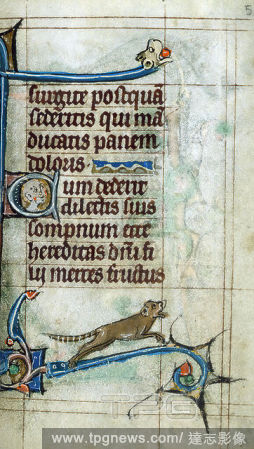 5
surgite postquā
sederitis qui mā
ducatis panem
doloris.
Cum dederit
dilectis suis
sompnum ecce
hereditas dñi fi
lij merces fructus
TPG
www.tpgnews.com/ 達志影像